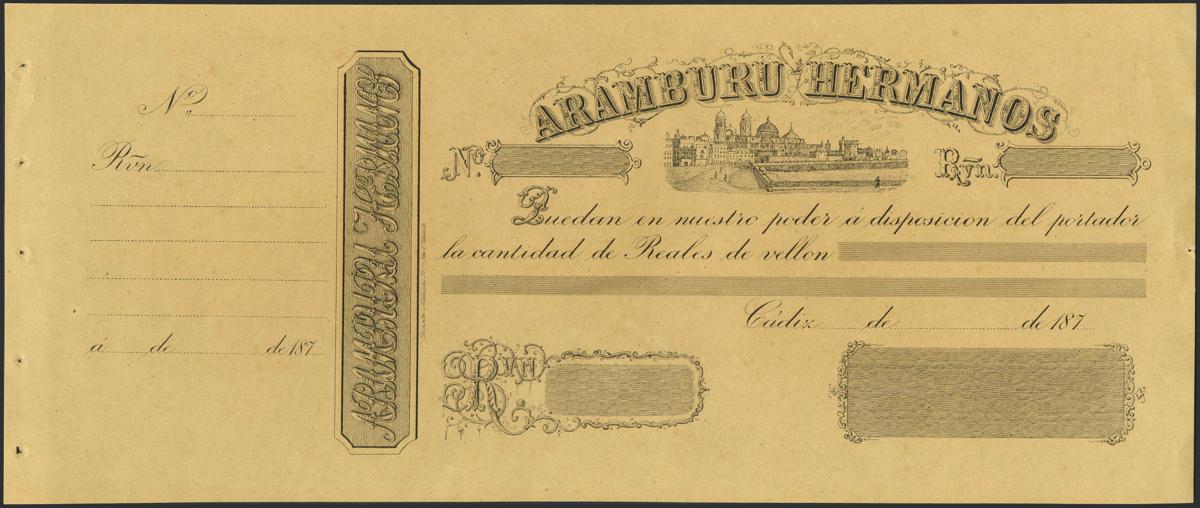 Nº
Rvn.
á de de 187
ARAMBURU HERMANOS
ARAMBURU HERMANOS
Nº.
Rvn.
Quedan en nuestro poder á disposicion del portador
la cantidad de Reales de vellon
Cádiz de de 187
Rvn.